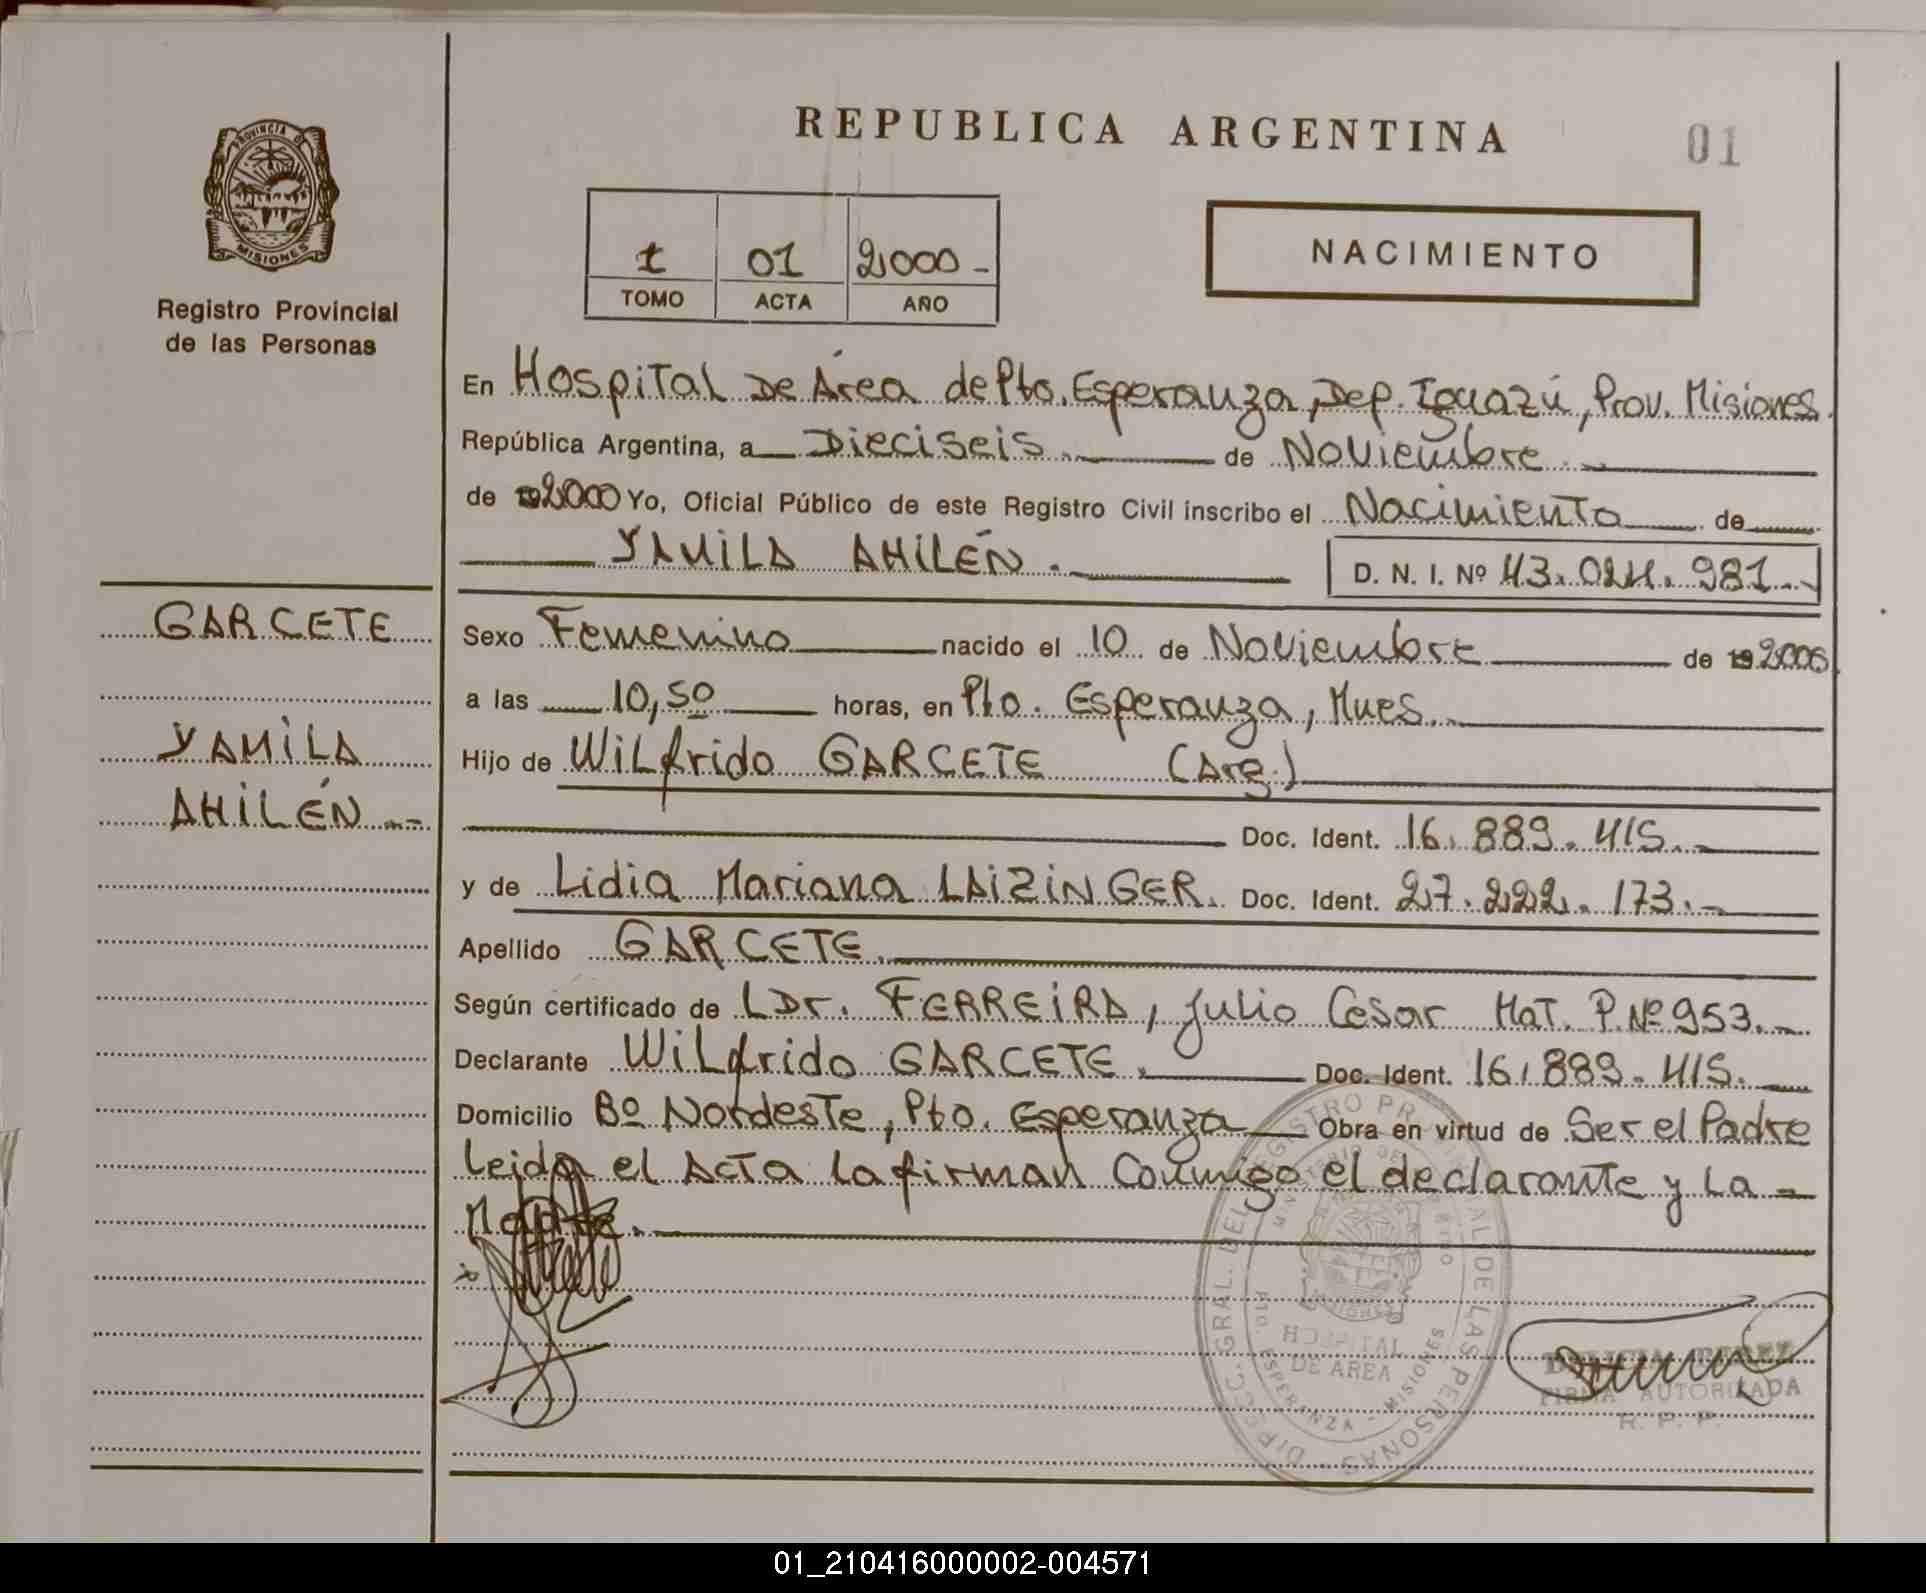 REPUBLICA ARGENTINA
01
PROVINCIA DE
MISIONES
Registro Provincial
de las Personas
1 01 2000-
TOMO ACTA AÑO
NACIMIENTO
En Hospital De Área de Pto. Esperanza, Dep. Iguazú, Prov. Misiones.
República Argentina, a Dieciseis.- de Noviembre.-
de 2000 Yo, Oficial Público de este Registro Civil inscribo el Nacimiento de
YAMILA AHILÉN.- D. N. I. Nº 43.024.981.-
GARCETE
YAMILA
AHILÉN.--
Sexo Femenino nacido el 10 de Noviembre de 19 2000
a las 10,50 horas, en Pto. Esperanza, Mnes.-
Hijo de Wilfrido GARCETE (Arg.)
Doc. Ident. 16.889.415.-
y de Lidia Mariana LAIZINGER. Doc. Ident. 27.222.173.-
Apellido GARCETE.
Según certificado de LDr. FERREIRA, Julio Cesar Mat. P.Nº 953.-
Declarante Wilfrido GARCETE. Doc. Ident. 16.889.415.-
Domicilio Bº Nordeste, Pto. Esperanza Obra en virtud de Ser el Padre
Leida el Acta la firman Conmigo el declarante y La -
Madre.
DIRECC. GRAL. DEL REGISTRO PROVINCIAL DE LAS PERSONAS
MINISTERIO DE
HOSPITAL
DE AREA
PTO. ESPERANZA - MISIONES
FIRMA AUTORIZADA
R. P. P.
01_210416000002-004571